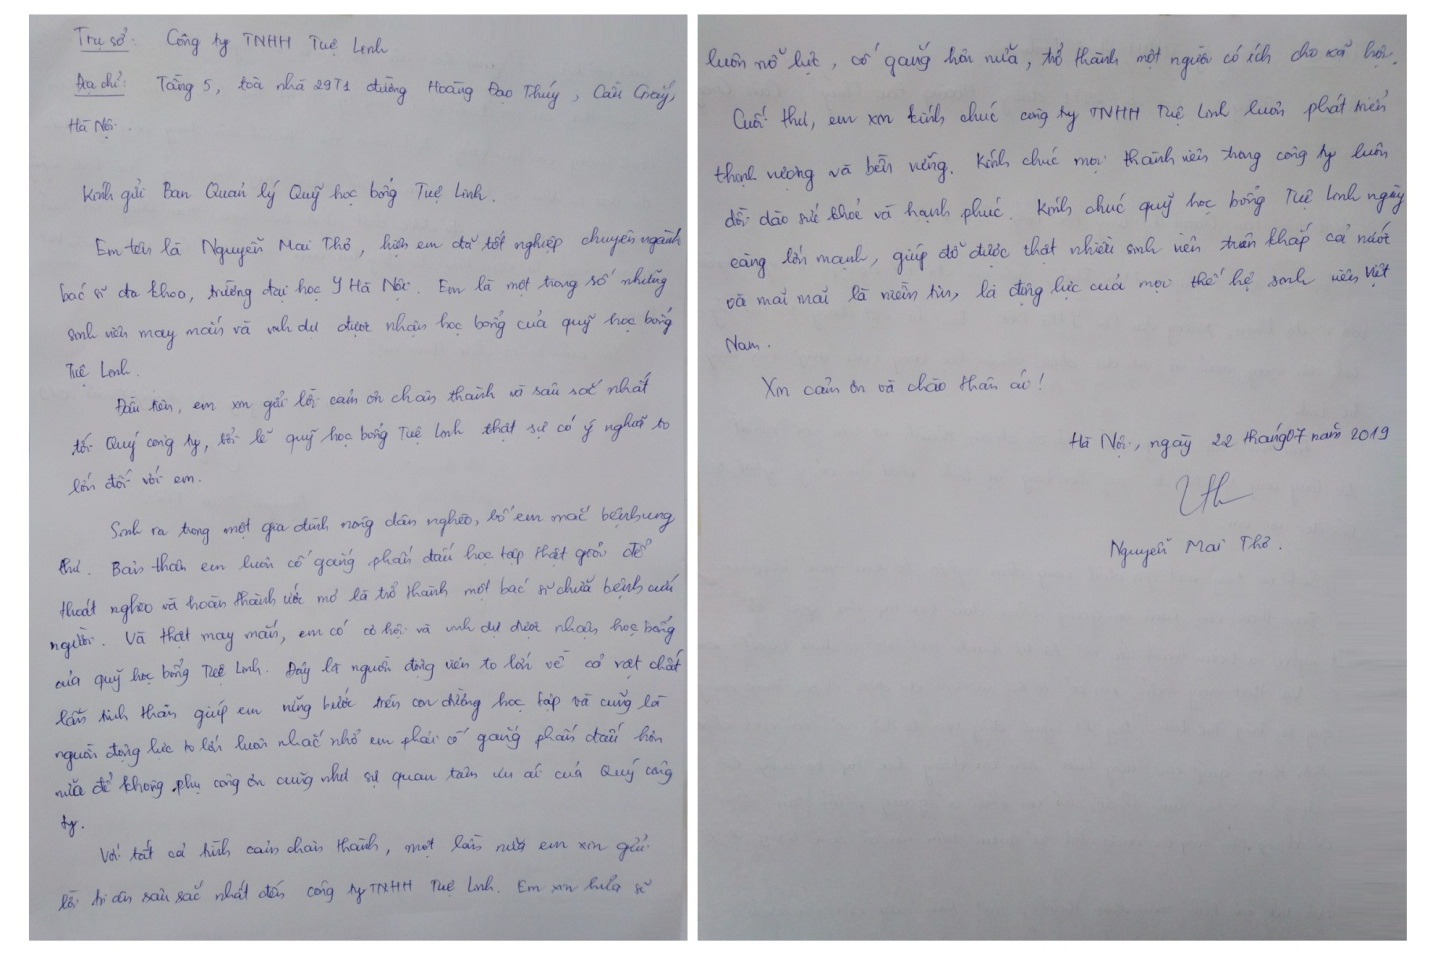 Trụ sở: Công ty TNHH Tuệ Linh
Địa chỉ: Tầng 5, toà nhà 29T1 đường Hoàng Đạo Thúy, Cầu Giấy,
Hà Nội.
Kính gửi Ban Quản lý Quỹ học bổng Tuệ Linh.
Em tên là Nguyễn Mai Thơ, hiện em đã tốt nghiệp chuyên ngành
bác sĩ đa khoa, trường đại học Y Hà Nội. Em là một trong số những
sinh viên may mắn và vinh dự được nhận học bổng của quỹ học bổng
Tuệ Linh.
Đầu tiên, em xin gửi lời cảm ơn chân thành và sâu sắc nhất
tới Quý công ty, bởi lẽ quỹ học bổng Tuệ Linh thật sự có ý nghĩa to
lớn đối với em.
Sinh ra trong một gia đình nông dân nghèo, bố em mắc bệnh ung
thư. Bản thân em luôn cố gắng phấn đấu học tập thật giỏi để
thoát nghèo và hoàn thành ước mơ là trở thành một bác sĩ chữa bệnh cứu
người. Và thật may mắn, em có cơ hội và vinh dự được nhận học bổng
của quỹ học bổng Tuệ Linh. Đây là nguồn động viên to lớn về cả vật chất
lẫn tinh thần giúp em vững bước trên con đường học tập và cũng là
nguồn động lực to lớn luôn nhắc nhở em phải cố gắng phấn đấu hơn
nữa để không phụ công ơn cũng như sự quan tâm ưu ái của Quý công
ty.
Với tất cả tình cảm chân thành, một lần nữa em xin gửi
lời tri ân sâu sắc nhất đến công ty TNHH Tuệ Linh. Em xin hứa sẽ
luôn nỗ lực, cố gắng hơn nữa, trở thành một người có ích cho xã hội.
Cuối thư, em xin kính chúc công ty TNHH Tuệ Linh luôn phát triển
thịnh vượng và bền vững. Kính chúc mọi thành viên trong công ty luôn
dồi dào sức khoẻ và hạnh phúc. Kính chúc quỹ học bổng Tuệ Linh ngày
càng lớn mạnh, giúp đỡ được thật nhiều sinh viên trên khắp cả nước
và mãi mãi là niềm tin, là động lực của mọi thế hệ sinh viên Việt
Nam.
Xin cảm ơn và chào thân ái!
Hà Nội, ngày 22 tháng 07 năm 2019
Nguyễn Mai Thơ.